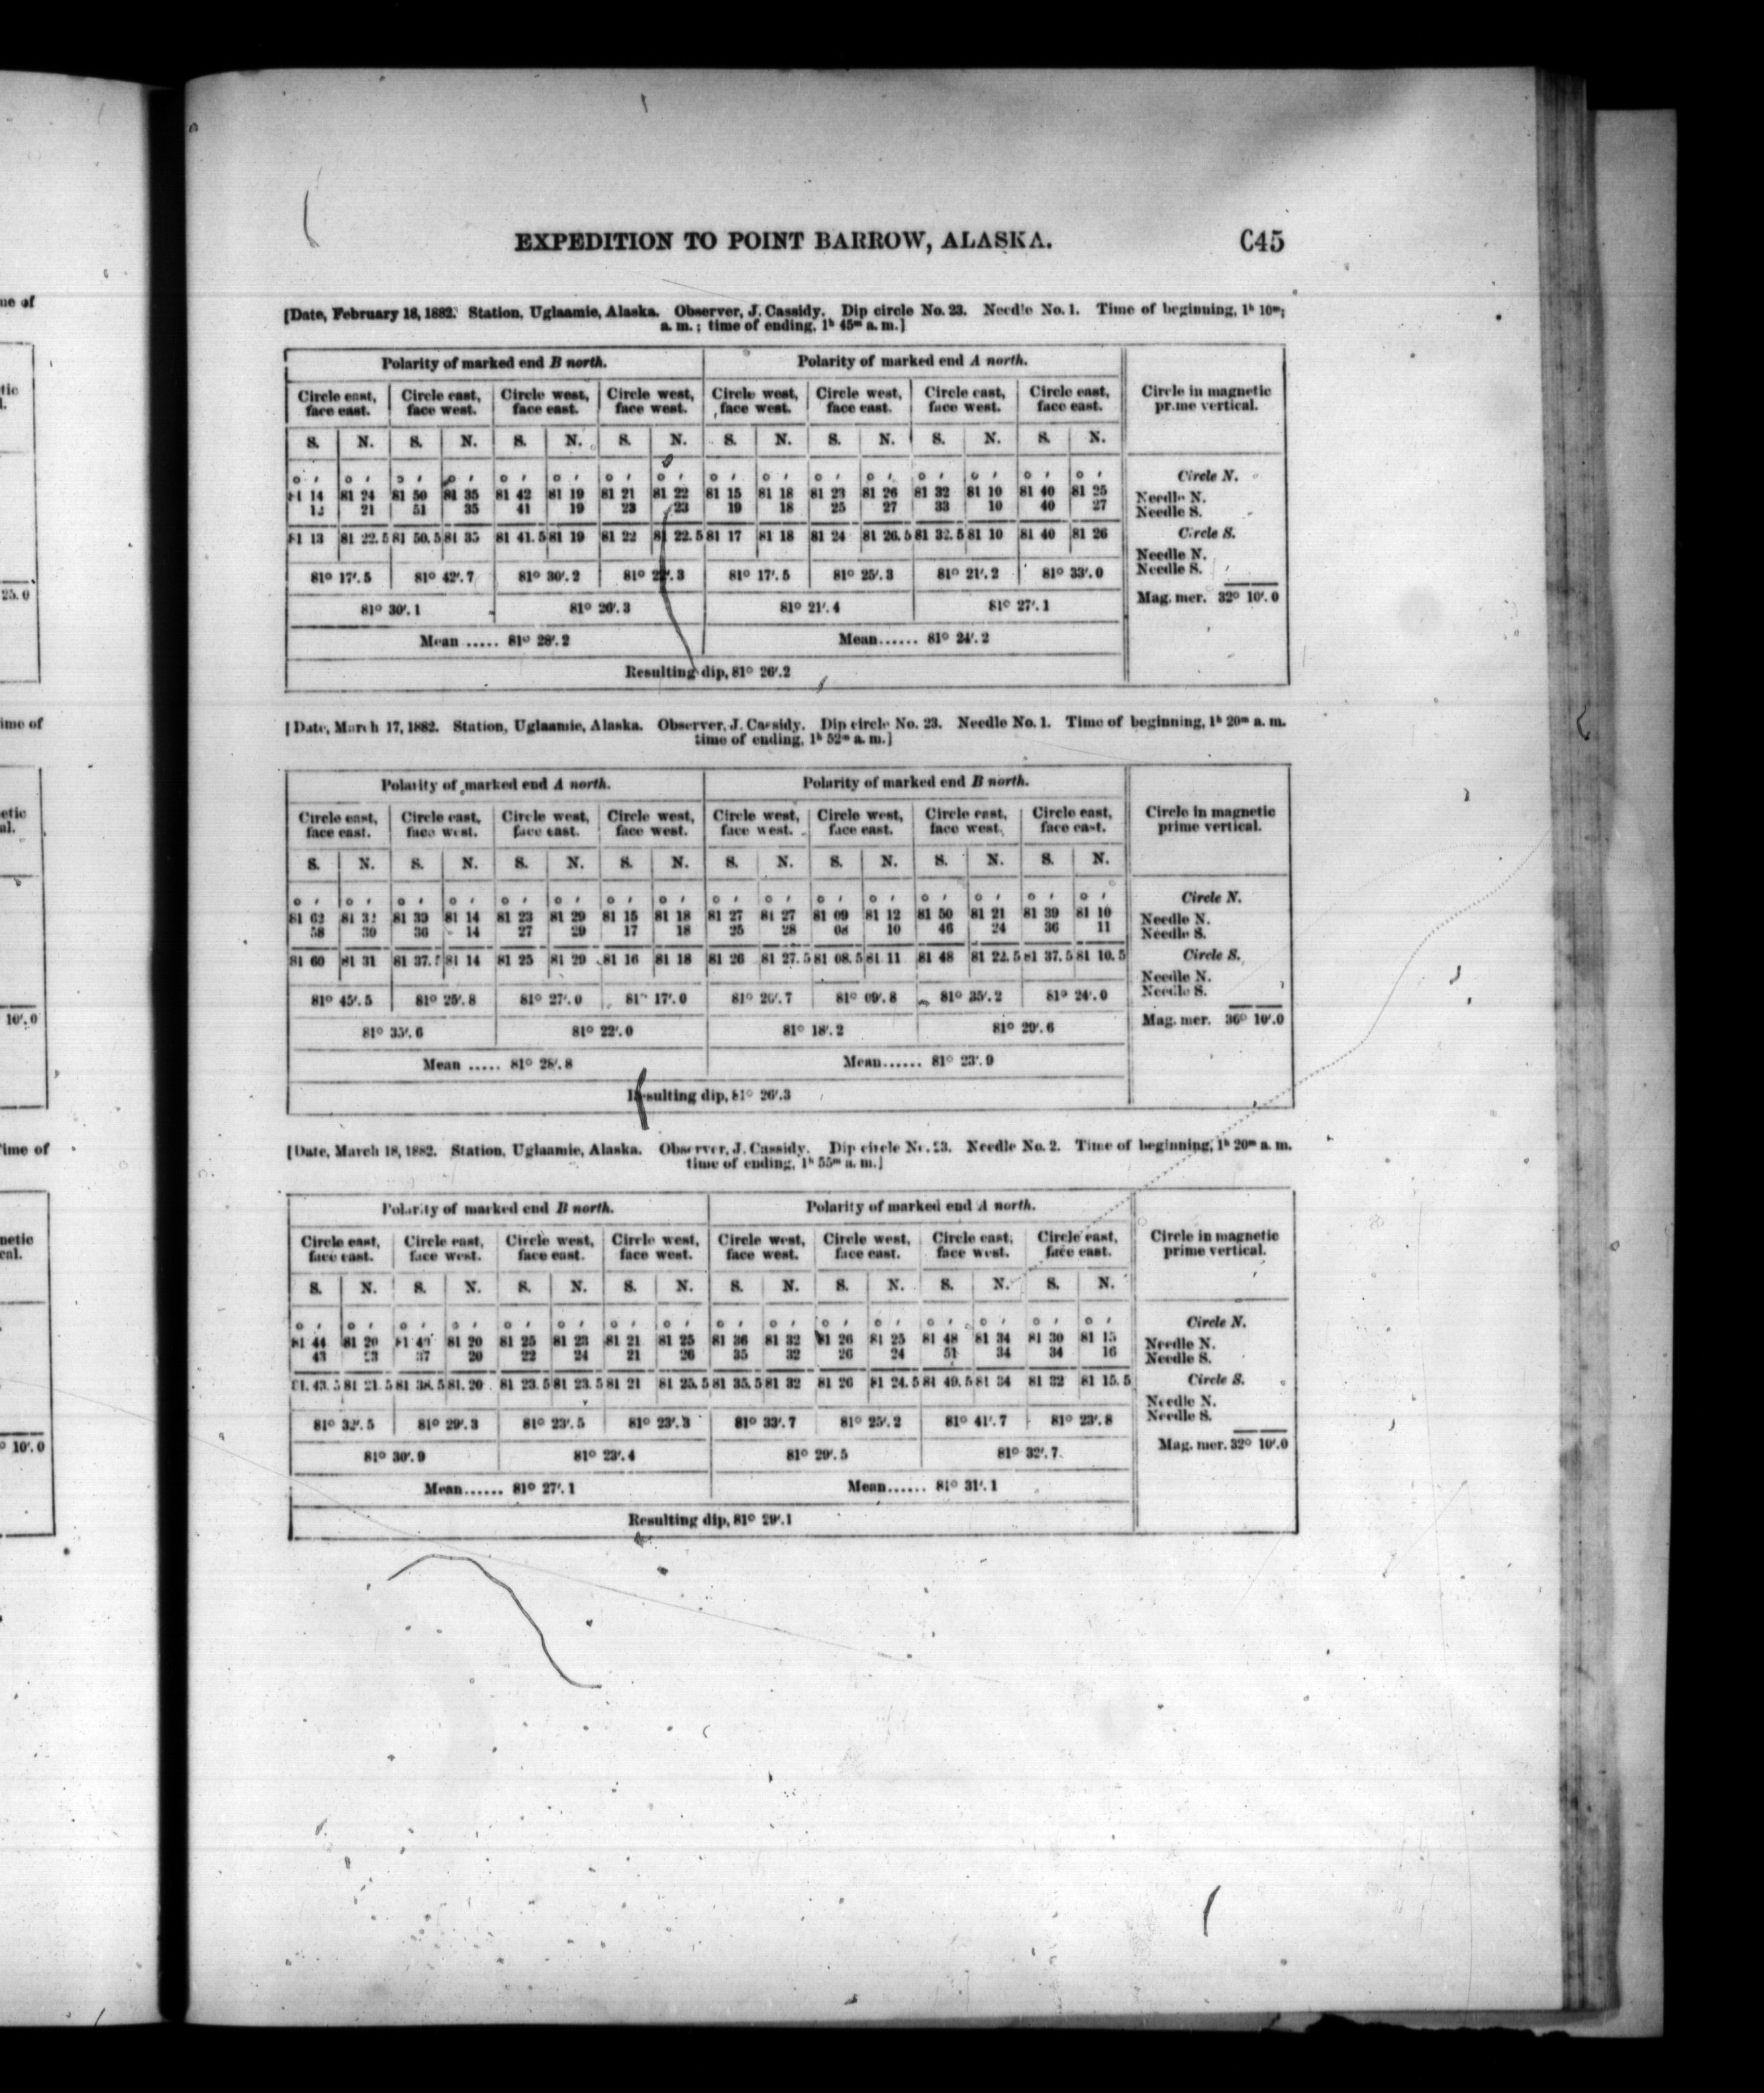 EXPEDITION TO POINT BARROW, ALASKA. C45
[Date, February 18, 1882. Station, Uglaamie, Alaska. Observer, J. Cassidy. Dip circle No. 23. Needle No. 1. Time of beginning, 1h 10m;
a. m.; time of ending, 1h 45m a. m.]
Polarity of marked end B north. Polarity of marked end A north.
Circle east, Circle east, Circle west, Circle west, Circle west, Circle west, Circle east, Circle east, Circle in magnetic
face east. face west. face east. face west. face west. face east. face west. face east. prime vertical.
S. N. S. N. S. N. S. N. S. N. S. N. S. N. S. N.
o ' o ' o ' o ' o ' o ' o ' o ' o ' o ' o ' o ' o ' o ' o ' o ' Circle N.
81 14 81 24 81 50 81 35 81 42 81 19 81 21 81 22 81 15 81 18 81 23 81 26 81 32 81 10 81 40 81 25 Needle N.
12 21 51 35 41 19 23 23 19 18 25 27 33 10 40 27 Needle S.
81 13 81 22.5 81 50.5 81 35 81 41.5 81 19 81 22 81 22.5 81 17 81 18 81 24 81 26.5 81 32.5 81 10 81 40 81 26 Circle S.
Needle N.
81° 17'.5 81° 42'.7 81° 30'.2 81° 22'.3 81° 17'.5 81° 25'.3 81° 21'.2 81° 33'.0 Needle S.
81° 30'.1 81° 26'.3 81° 21'.4 81° 27'.1 Mag. mer. 32° 10'.0
Mean ..... 81° 28'.2 Mean...... 81° 24'.2
Resulting dip, 81° 26'.2
[Date, March 17, 1882. Station, Uglaamie, Alaska. Observer, J. Cassidy. Dip circle No. 23. Needle No. 1. Time of beginning, 1h 20m a. m.
time of ending, 1h 52m a. m.]
Polarity of marked end A north. Polarity of marked end B north.
Circle east, Circle east, Circle west, Circle west, Circle west, Circle west, Circle east, Circle east, Circle in magnetic
face east. face west. face east. face west. face west. face east. face west. face east. prime vertical.
S. N. S. N. S. N. S. N. S. N. S. N. S. N. S. N.
o ' o ' o ' o ' o ' o ' o ' o ' o ' o ' o ' o ' o ' o ' o ' o ' Circle N.
81 62 81 32 81 39 81 14 81 23 81 29 81 15 81 18 81 27 81 27 81 09 81 12 81 50 81 21 81 39 81 10 Needle N.
58 30 36 14 27 29 17 18 25 28 08 10 46 24 36 11 Needle S.
81 60 81 31 81 37.5 81 14 81 25 81 29 81 16 81 18 81 26 81 27.5 81 08.5 81 11 81 48 81 22.5 81 37.5 81 10.5 Circle S.
Needle N.
81° 45'.5 81° 25'.8 81° 27'.0 81° 17'.0 81° 26'.7 81° 09'.8 81° 35'.2 81° 24'.0 Needle S.
81° 35'.6 81° 22'.0 81° 18'.2 81° 29'.6 Mag. mer. 36° 10'.0
Mean ..... 81° 28'.8 Mean...... 81° 23'.9
Resulting dip, 81° 26'.3
[Date, March 18, 1882. Station, Uglaamie, Alaska. Observer, J. Cassidy. Dip circle No. 23. Needle No. 2. Time of beginning, 1h 20m a. m.
time of ending, 1h 55m a. m.]
Polarity of marked end B north. Polarity of marked end A north.
Circle east, Circle east, Circle west, Circle west, Circle west, Circle west, Circle east, Circle east, Circle in magnetic
face east. face west. face east. face west. face west. face east. face west. face east. prime vertical.
S. N. S. N. S. N. S. N. S. N. S. N. S. N. S. N.
o ' o ' o ' o ' o ' o ' o ' o ' o ' o ' o ' o ' o ' o ' o ' o ' Circle N.
81 44 81 20 81 40 81 20 81 25 81 23 81 21 81 25 81 36 81 32 81 26 81 25 81 48 81 34 81 30 81 15 Needle N.
43 23 37 20 22 24 21 26 35 32 26 24 51 34 34 16 Needle S.
81.43.5 81 21.5 81 38.5 81.20 81 23.5 81 23.5 81 21 81 25.5 81 35.5 81 32 81 26 81 24.5 81 49.5 81 34 81 32 81 15.5 Circle S.
Needle N.
81° 32'.5 81° 29'.3 81° 23'.5 81° 23'.3 81° 33'.7 81° 25'.2 81° 41'.7 81° 23'.8 Needle S.
81° 30'.9 81° 23'.4 81° 29'.5 81° 32'.7 Mag. mer. 32° 10'.0
Mean...... 81° 27'.1 Mean...... 81° 31'.1
Resulting dip, 81° 29'.1